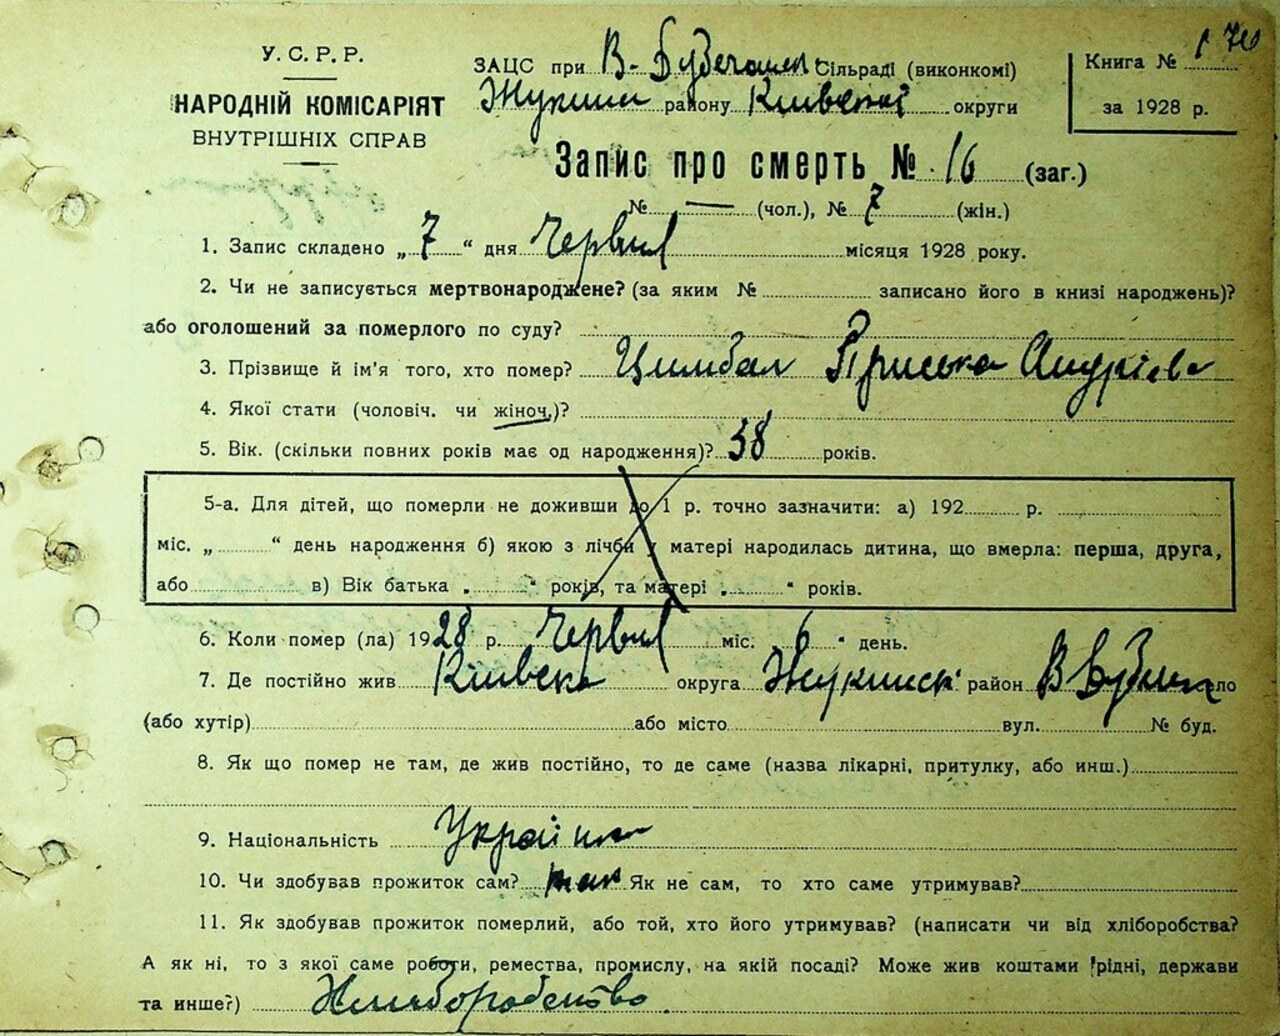 У.С.Р.Р.
НАРОДНІЙ КОМІСАРІЯТ
ВНУТРІШНІХ СПРАВ
ЗАЦС при В-Бубечанск. Сільраді (виконкомі)
Жукинськ району Київської округи
Книга № 1
за 1928 р.
Запис про смерть № 16 (заг.)
№ — (чол.), № 7 (жін.)
1. Запис складено „7“ дня Червня місяця 1928 року.
2. Чи не записується мертвонароджене? (за яким № записано його в книзі народжень)?
або оголошений за померлого по суду?
3. Прізвище й ім'я того, хто помер? Цимбал Пріська Андрієва
4. Якої стати (чоловіч. чи жіноч.)?
5. Вік. (скільки повних років має од народження)? 38 років.
5-а. Для дітей, що померли не доживши до 1 р. точно зазначити: а) 192 р.
міс. „ “ день народження б) якою з лічби у матері народилась дитина, що вмерла: перша, друга,
або в) Вік батька „ “ років, та матері „ “ років.
6. Коли помер (ла) 1928 р. Червня міс. 6 день.
7. Де постійно жив Київска округа Жукинськ район село
(або хутір) або місто вул. № буд.
8. Як що помер не там, де жив постійно, то де саме (назва лікарні, притулку, або инш.)
9. Національність Українка
10. Чи здобував прожиток сам? так Як не сам, то хто саме утримував?
11. Як здобував прожиток померлий, або той, хто його утримував? (написати чи від хліборобства?
А як ні, то з якої саме роботи, ремества, промислу, на якій посаді? Може жив коштами рідні, держави
та инше?) Хліборобство